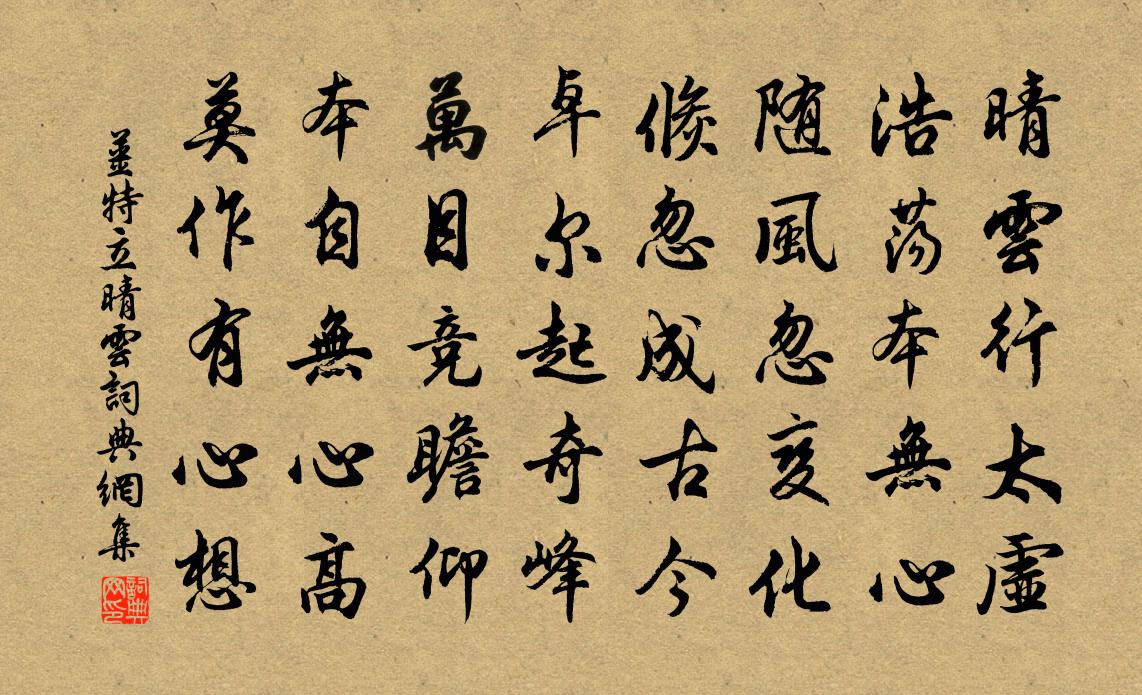 晴雲行太虛
浩蕩本無心
随風忽變化
倐忽成古今
卓尔起奇峰
萬目竞瞻仰
本自無心高
莫作有心想
姜特立晴雲詞典網集
詞典网印